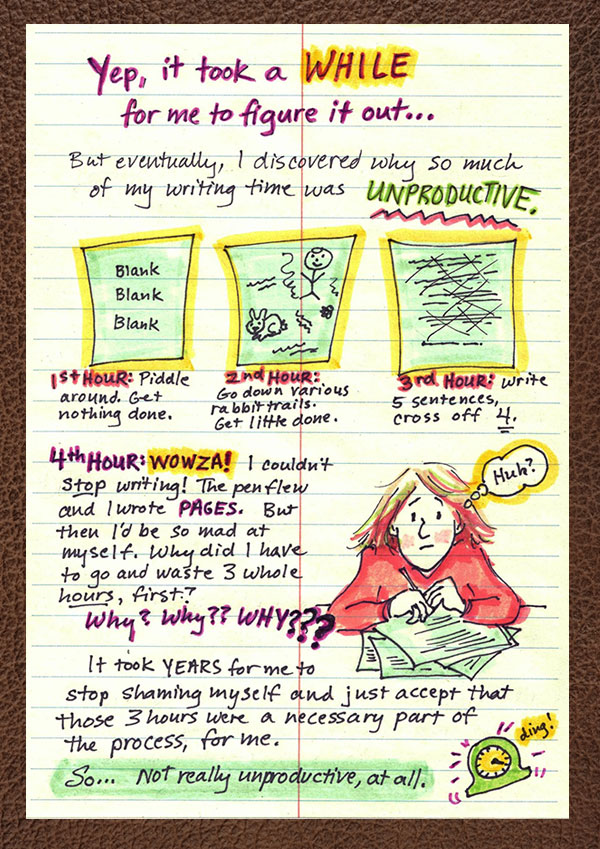 Yep, it took a WHILE
for me to figure it out...
But eventually, I discovered why so much
of my writing time was UNPRODUCTIVE.
Blank
Blank
Blank
1st HOUR: Piddle
around. Get
nothing done.
2nd HOUR:
Go down various
rabbit trails.
Get little done.
3rd HOUR: Write
5 sentences,
cross off 4.
4th HOUR: WOWZA! I couldn't
stop writing! The pen flew
and I wrote PAGES. But
then I'd be so mad at
myself. Why did I have
to go and waste 3 whole
hours, first?
Why? Why?? WHY???
Huh?
It took YEARS for me to
stop shaming myself and just accept that
those 3 hours were a necessary part of
the process, for me.
ding!
So... Not really unproductive, at all.